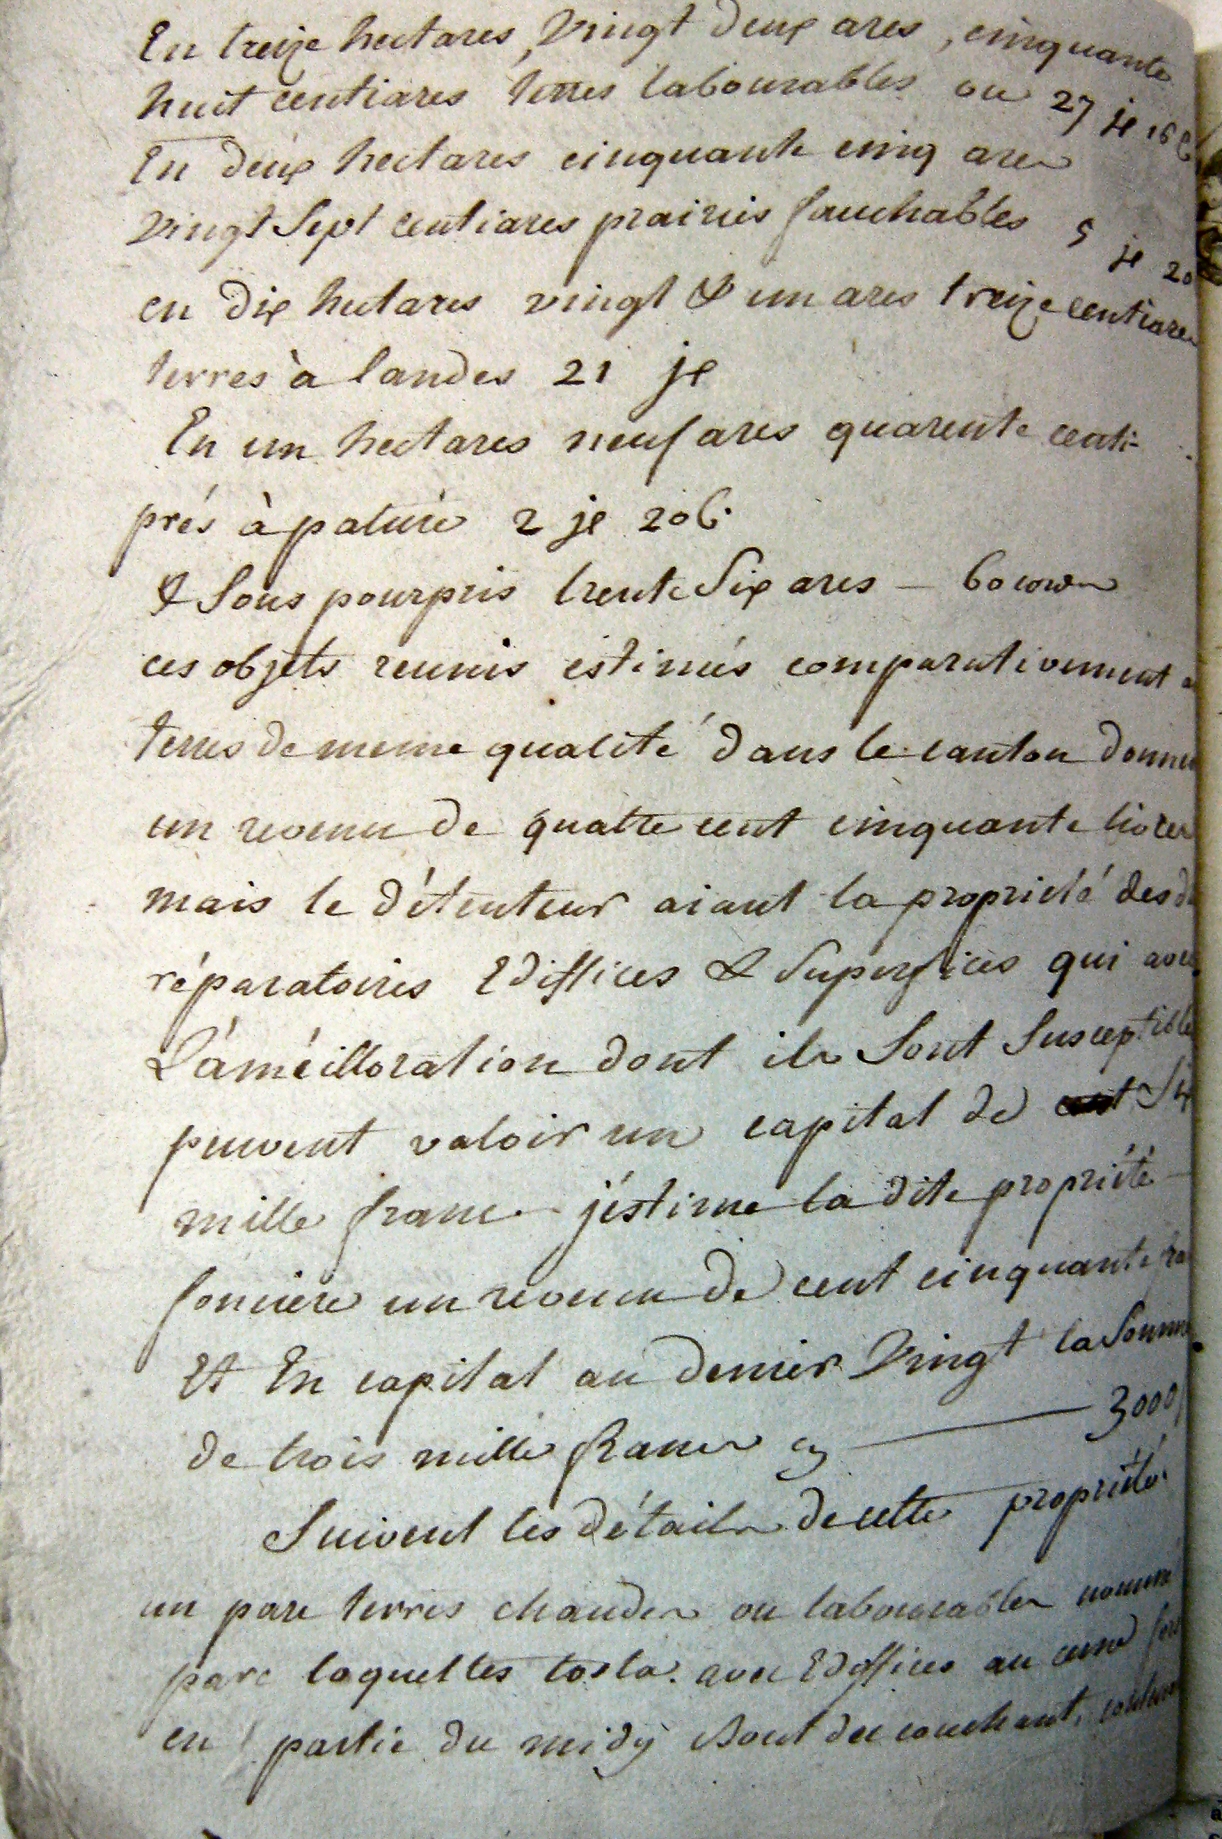 En treize hectares, vingt deux ares, cinquante
huit centiares terres labourables ou 27 je 16 C
En deux hectares cinquante cinq ares
vingt sept centiares prairies fauchables 5 je 20
en dix hectares vingt & un ares treize centiares
terres à landes 21 je
En un hectares neuf ares quarente centi-
prés à pature 2 je 20 C.
& sous pourpris trente six ares – 60 cordes
ces objets reunis estimés comparativement
terres de meme qualité dans le canton
un revenu de quatre cent cinquante livres
mais le détenteur aiant la propriété des
réparatoires Ediffices & Superfices qui avec
L'améilloration dont ils sont susceptible
peuvent valoir un capital de six
mille franc j'éstime la dite propriété –
fonciere un revenu de cent cinquante
Et En capital au denier vingt la somme
de trois mille francs cy 3000
Suivent les détails de cette propriété
un parc terres chaudes ou labourables nommé
parc laquelles avec Ediffices au
en partie du midy du couchant,